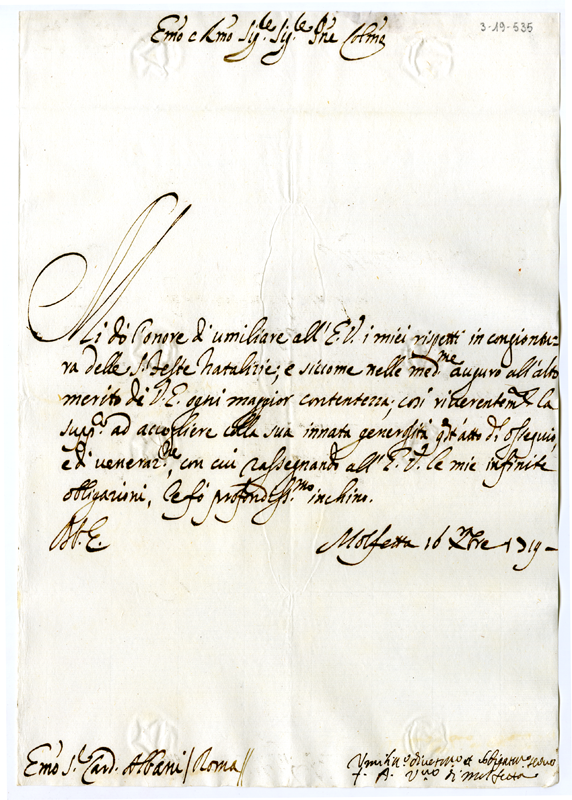 3-19-535
Emo e Rmo Sig.re Sig.re Pne Colmo
Mi dò l'onore di umiliare all'E.V. i miei rispetti in congiontu-
ra delle S. Feste Natalizie; e siccome nelle med.me auguro all'alto
merito di V.E. ogni maggior contentezza, così riverentem.te la
supp.o ad accogliere colla sua innata generosità q.sto atto di ossequio,
e di veneraz.ne, con cui rassegnando all'E.V. le mie infinite
obligazioni, le fò profondiss.mo inchino.
Di V.E.
Molfetta 16 Xbre 1719
Emo S.r Card. Albani / Roma //
Umiliss.o divotmo et obligatmo servo
F. A. V.vo di Molfetta